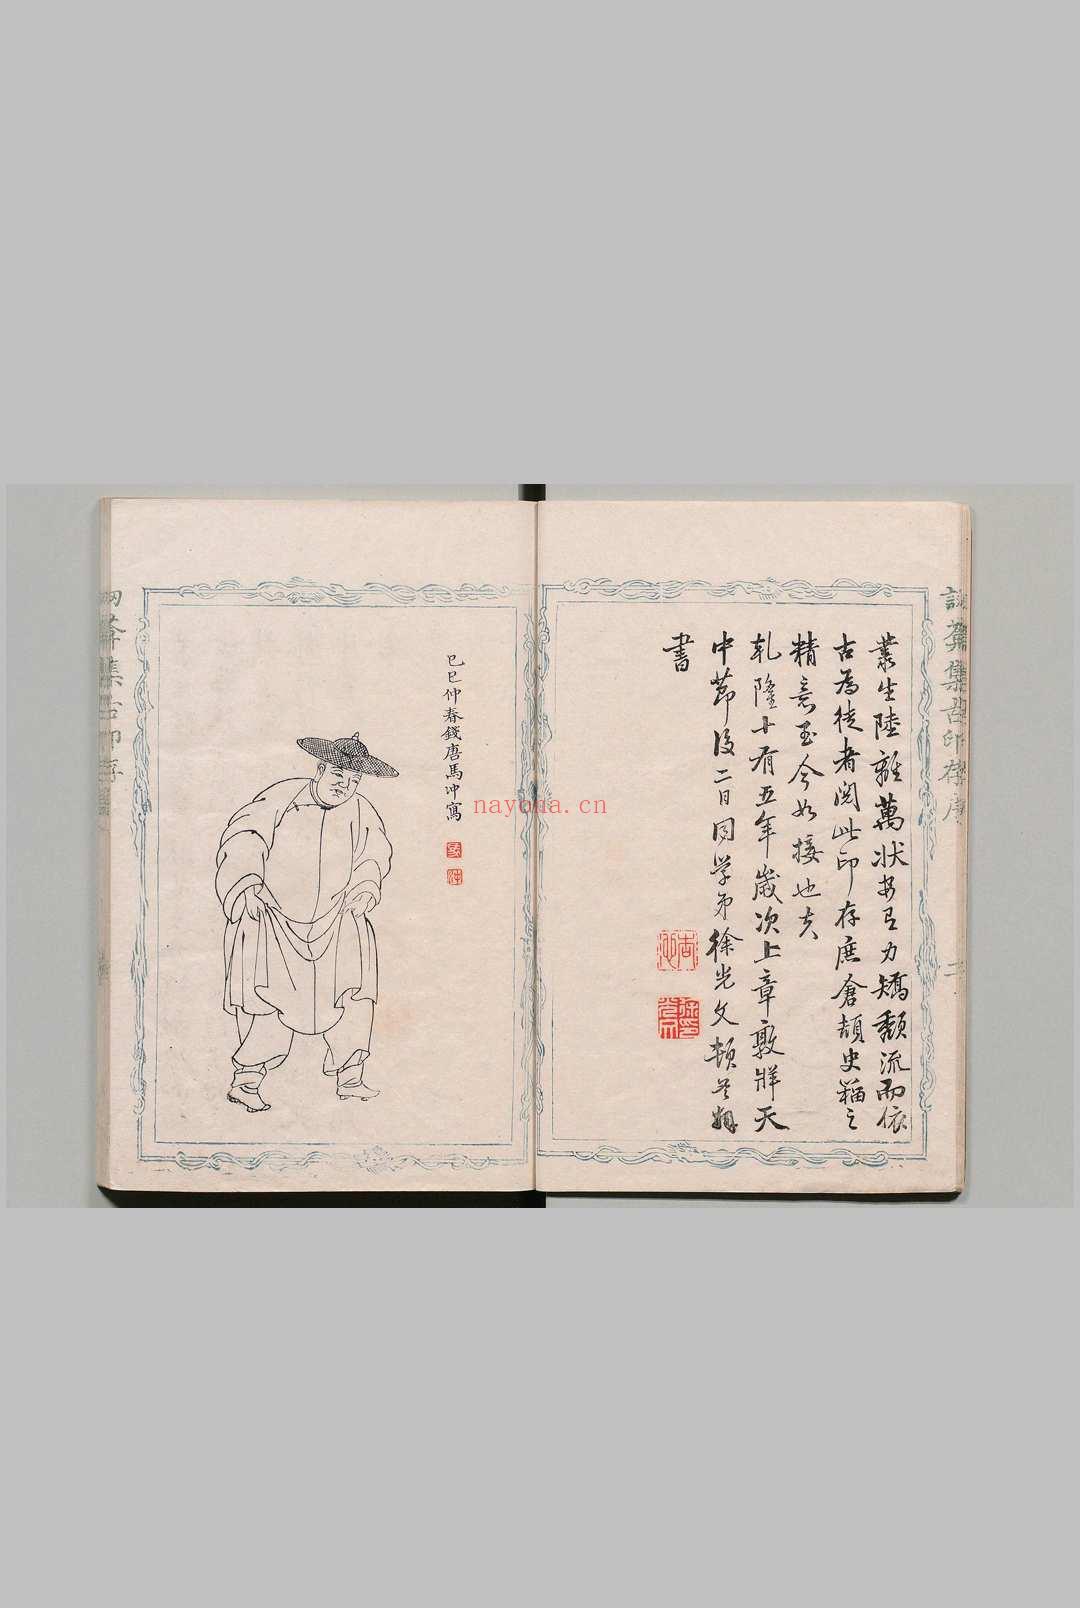 叢生陸離萬狀安有力矯頹流而依
古為徒者閱此印存庶倉頡史籀之
精意至今如接也夫
乾隆十有五年歲次上章敦牂天
中節後二日同學弟徐光文頓首拜
書
己巳仲春錢唐馬冲寫
nayona.cn